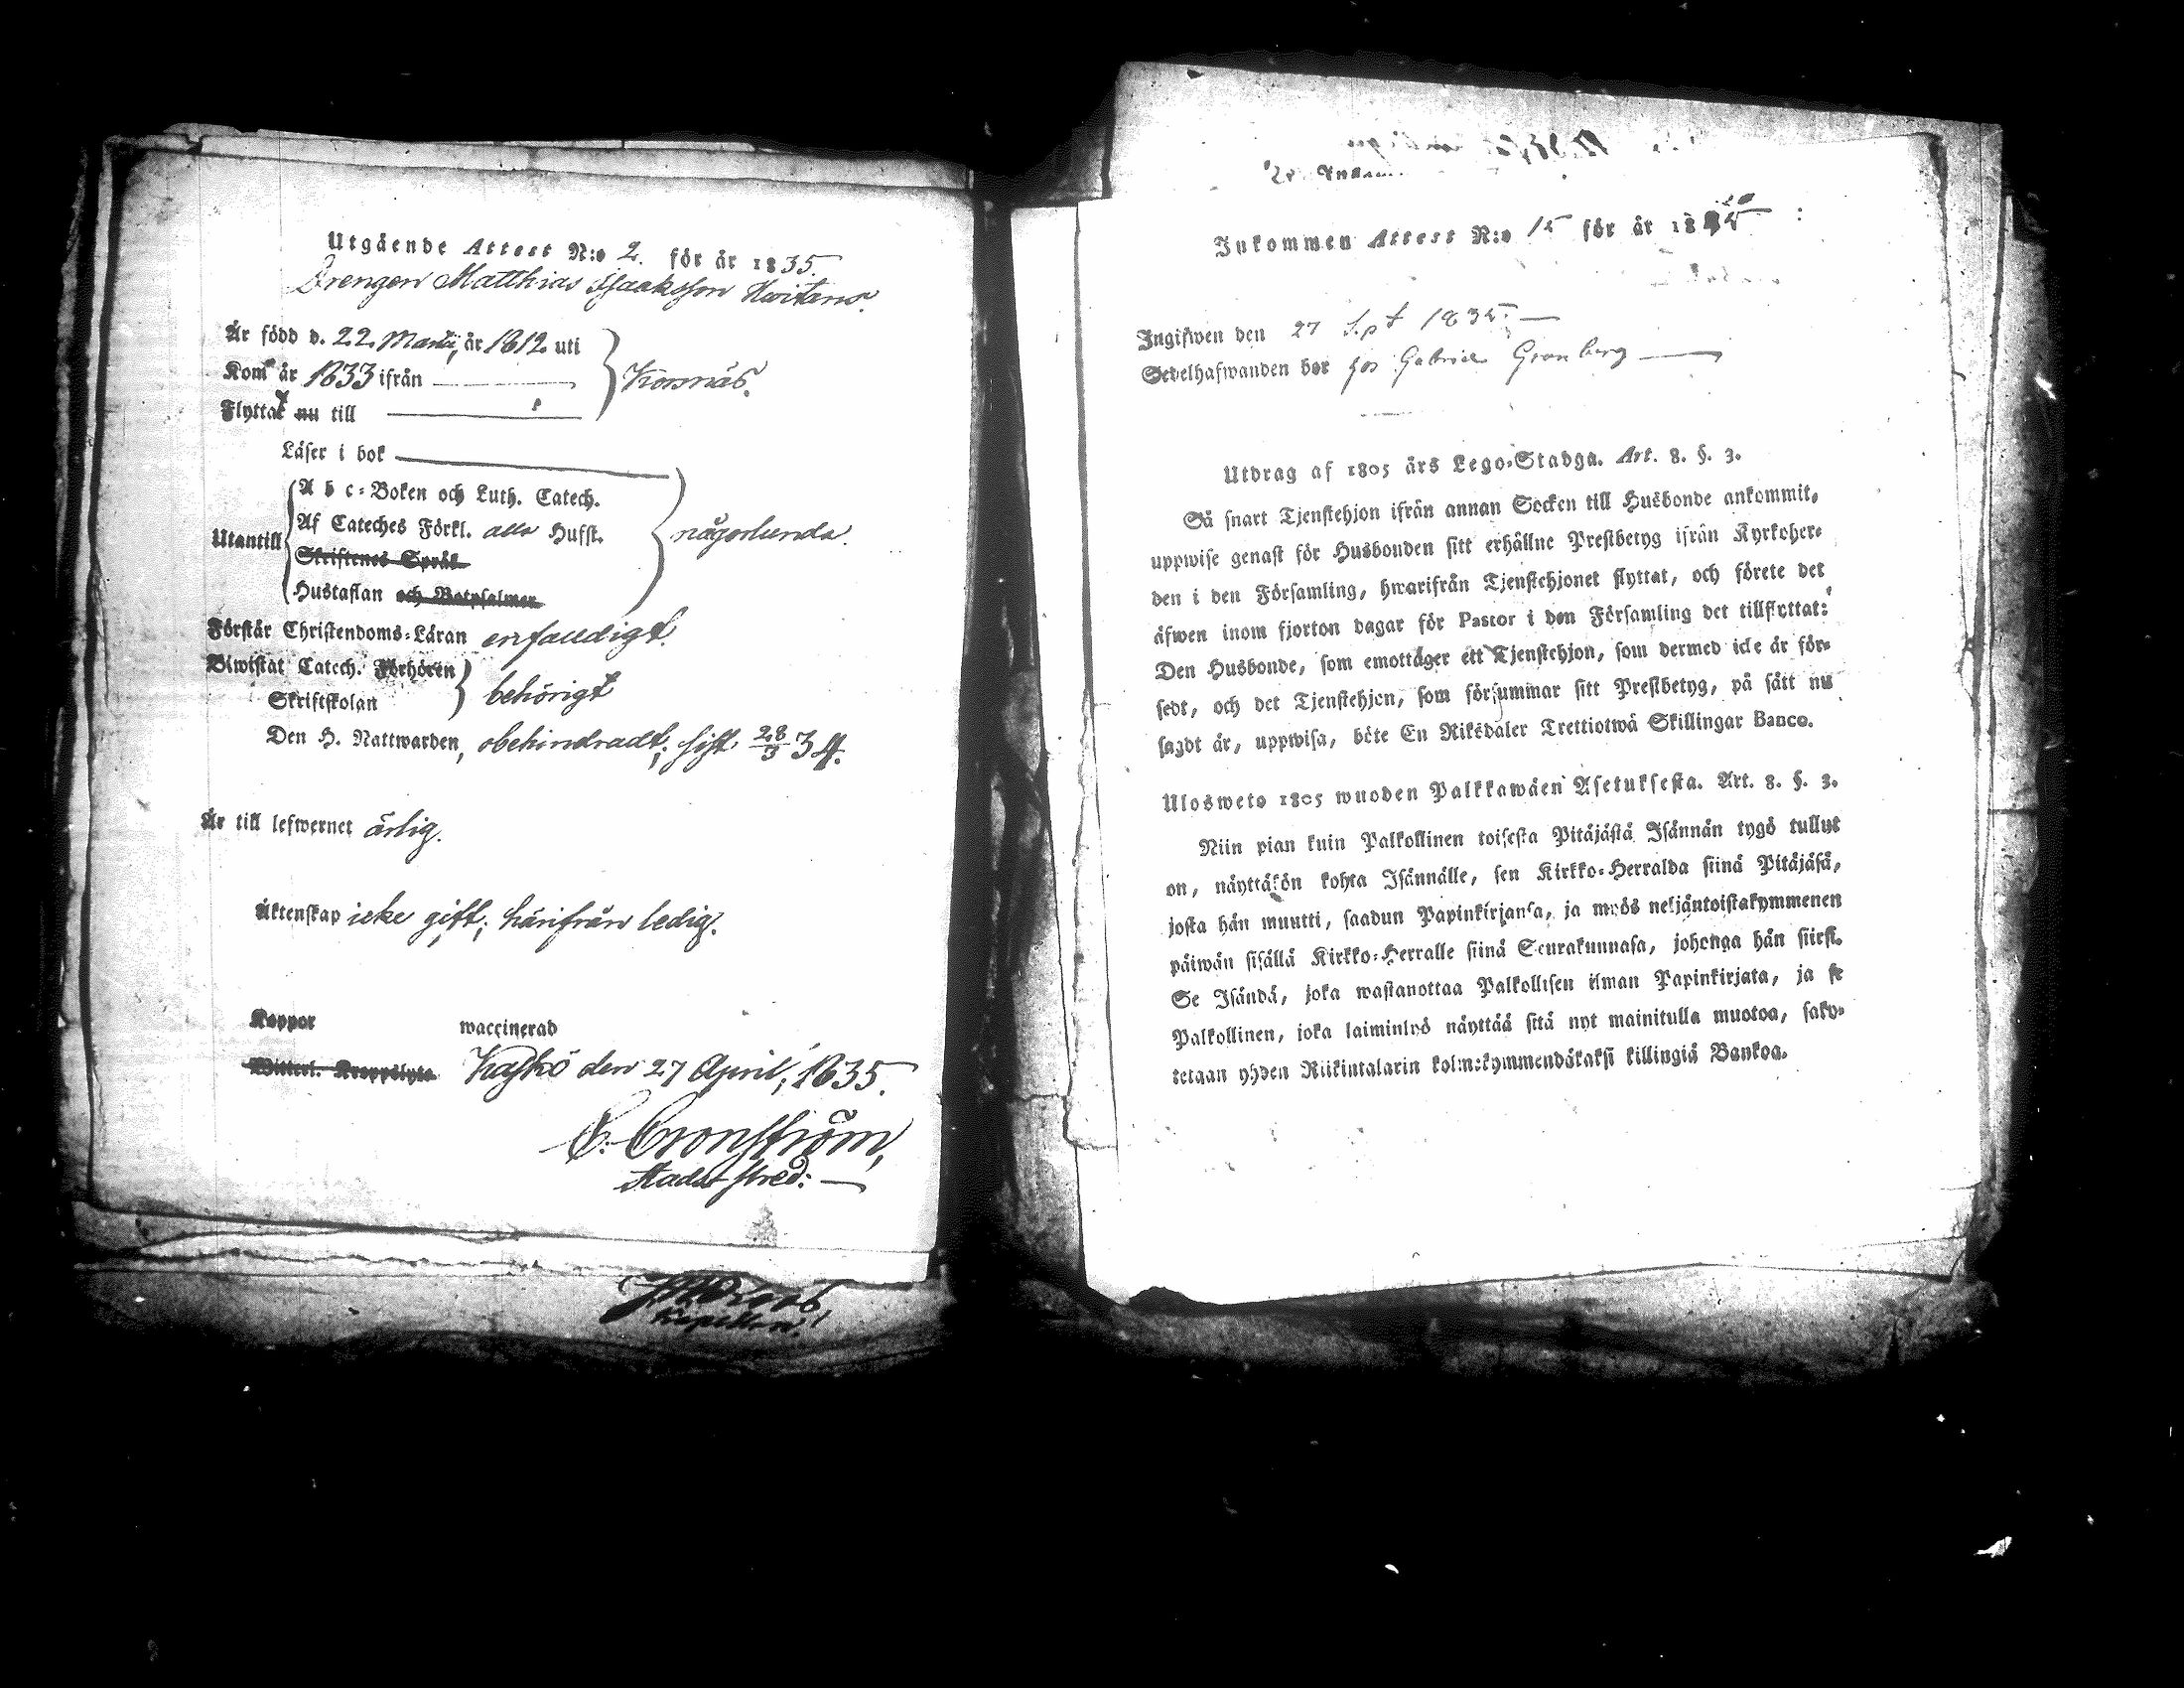 Utgående Attest N:o 2. för år 1835.
Drengen Matthias Isaaksson Hwitans.
Är född d. 22 Martii, år 1812 uti
Kom år 1833 ifrån
Korsnäs.
Flyttat nu till
Läser i bok
A b c-Boken och Luth. Catech.
Utantill Af Cateches Förkl. alla Hufst. någorlunda.
Skriftenes Språk
Hustaflan och Botpsalmer
Förstår Christendoms-Läran enfaldigt.
Biwistat Catech. Förhören
behörigt
Skriftskolan
Den H. Nattwarden, obehindradt; sist 28/3 34.
Är till lefwernet ärlig.
Äktenskap icke gift; härifrån ledig.
Koppor waccinerad
Kaskö den 27 April, 1835.
C. Cronström,
Kapellan.
Inkommen Attest N:o 15 för år 18
Ingifwen den 27 Spt 1835
Sedelhafwanden bor hos Gabriel Granberg
Utdrag af 1805 års Lego-Stadga. Art. 8. §. 3.
Så snart Tjenstehjon ifrån annan Socken till Husbonde ankommit,
uppwise genast för Husbonden sitt erhållne Prestbetyg ifrån Kyrkoher-
den i den Församling, hwarifrån Tjenstehjonet flyttat, och förete det
äfwen inom fjorton dagar för Pastor i den Församling det tillflyttat:
Den Husbonde, som emottager ett Tjenstehjon, som dermed icke är för-
sedt, och det Tjenstehjon, som försummar sitt Prestbetyg, på sätt nu
sagdt är, uppwisa, böte En Riksdaler Trettiotwå Skillingar Banco.
Ulosweto 1805 wuoden Palkkawäen Asetuksesta. Art. 8. §. 3.
Niin pian kuin Palkollinen toisesta Pitäjästä Isännän tygö tullut
on, näyttäkön kohta Isännälle, sen Kirkko-Herralda siinä Pitäjäsä,
josta hän muutti, saadun Papinkirjansa, ja myös neljäntoistakymmenen
päiwän sisällä Kirkko-Herralle siinä Seurakunnasa, johonga hän siirst.
Se Isändä, joka wastanottaa Palkollisen ilman Papinkirjata, ja se
Palkollinen, joka laiminlyö näyttää sitä nyt mainitulla muotoa, saky-
tetaan yhden Riikintalarin kolmekymmendäkaksi killingiä Bankoa.